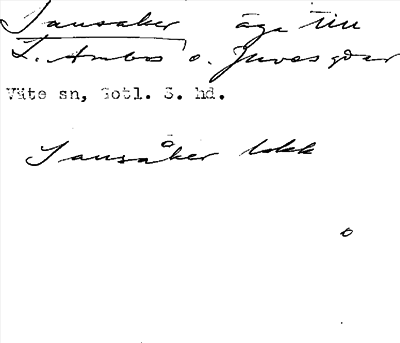 Sausaker äga till
L. Ambos o. Juves gdar
Väte sn, Gotl. S. hd.
Sausåker